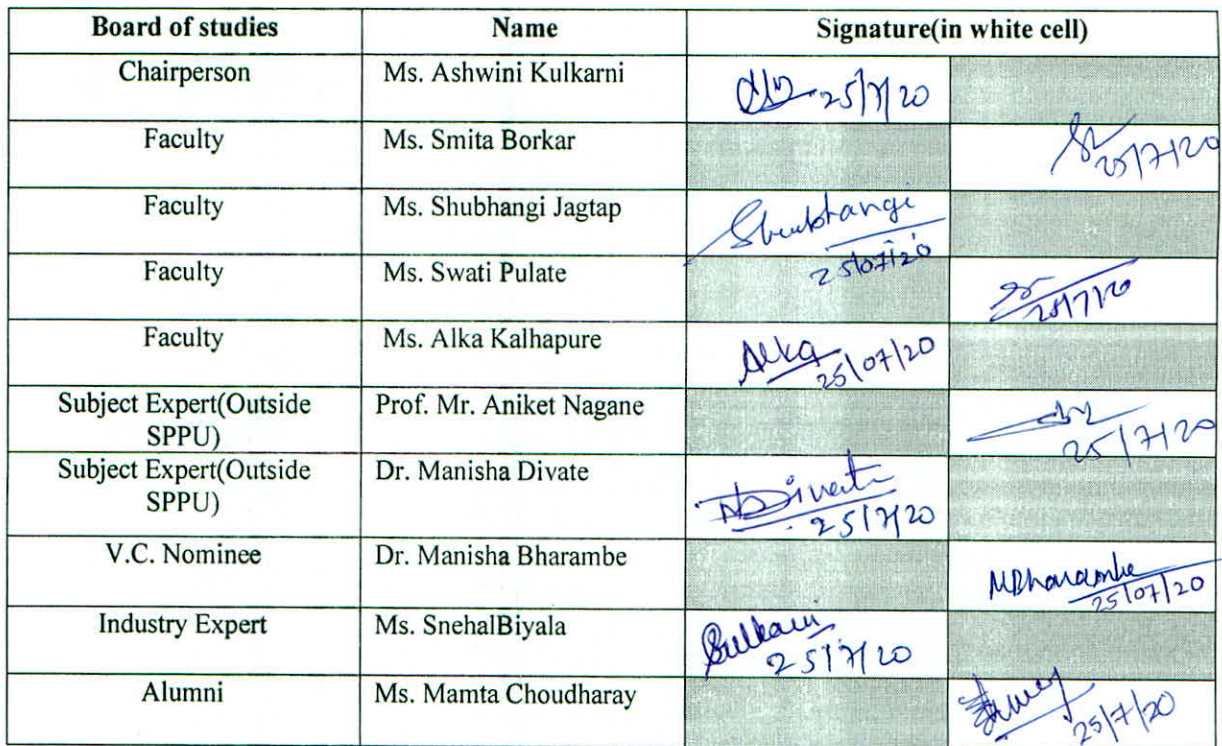 Board of studies Name Signature(in white cell)
Chairperson Ms. Ashwini Kulkarni 25/7/20
Faculty Ms. Smita Borkar 25/7/20
Faculty Ms. Shubhangi Jagtap Shubhangi
25/07/20
Faculty Ms. Swati Pulate 25/7/20
Faculty Ms. Alka Kalhapure Alka
25/07/20
Subject Expert(Outside Prof. Mr. Aniket Nagane
SPPU) 25/7/20
Subject Expert(Outside Dr. Manisha Divate Divate
SPPU) 25/7/20
V.C. Nominee Dr. Manisha Bharambe MBharambe
25/07/20
Industry Expert Ms. SnehalBiyala
25/7/20
Alumni Ms. Mamta Choudharay
25/7/20